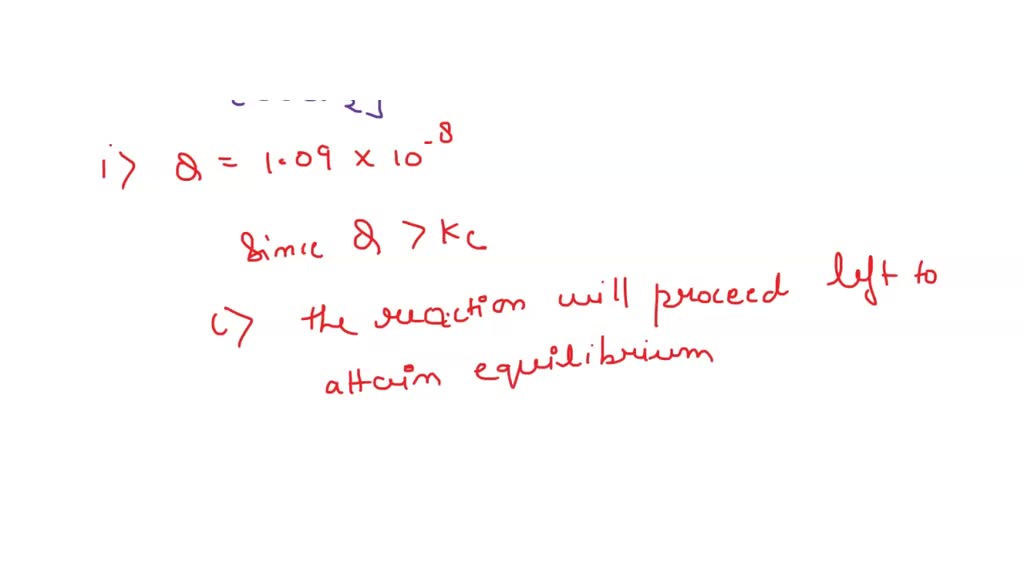 i> Q = 1.09 x 10⁻⁸
Since Q > Kc
c> the reaction will proceed left to
attain equilibrium